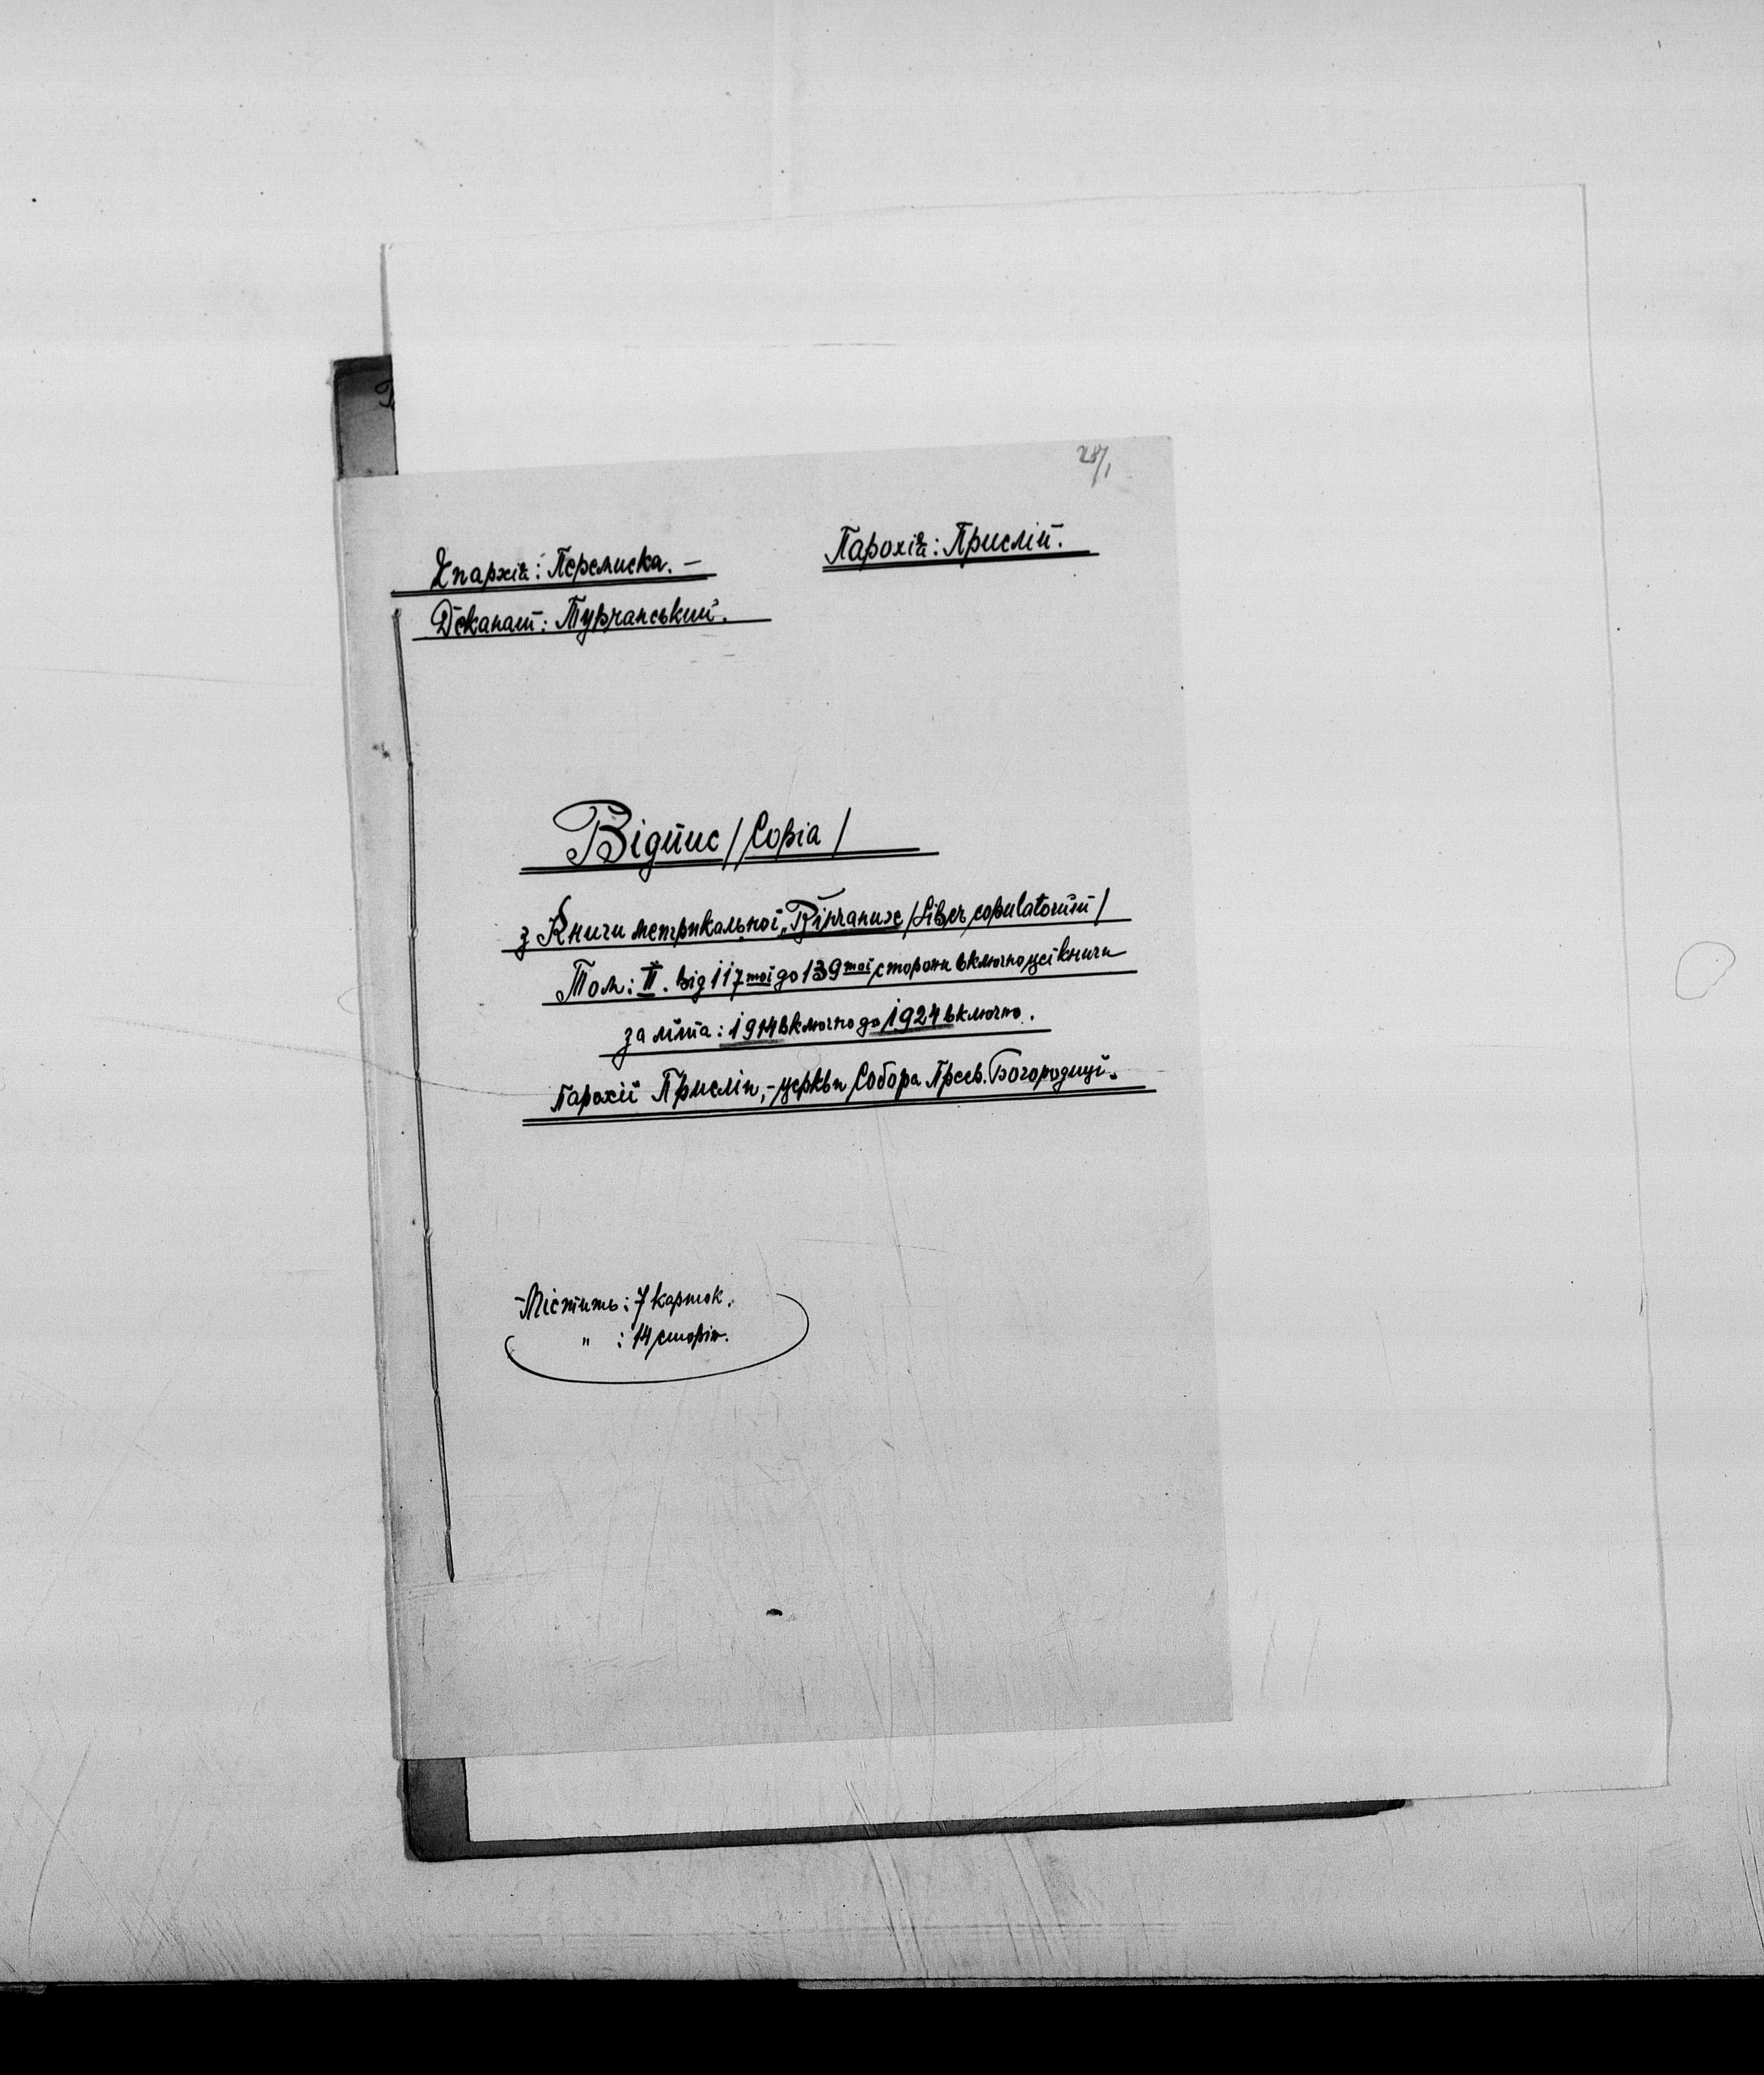 28/1
Епархія: Перемиска. –
Парохія: Прислій.
Деканат: Турчанський.
Відпис / Copia /
з Книги метрикальної „Вінчаних / Liber copulatorum /
Том: II. від 117тої до 139тої сторони включно цеї книги
за літа: 1914 включно до 1924 включно.
парохії Прислін, – церкви Собора Пресв. Богородиці.
Містить: 7 карток.
" : 14 сторін.